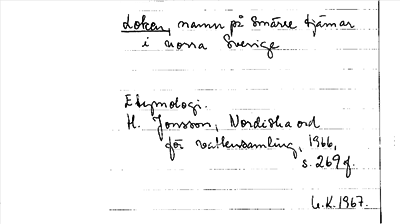 Loken, namn på smärre tjärnar
i norra Sverige
Etymologi.
H. Jonsson, Nordiska ord
för vattensamling, 1966,
s. 269 f.
G.K. 1967.